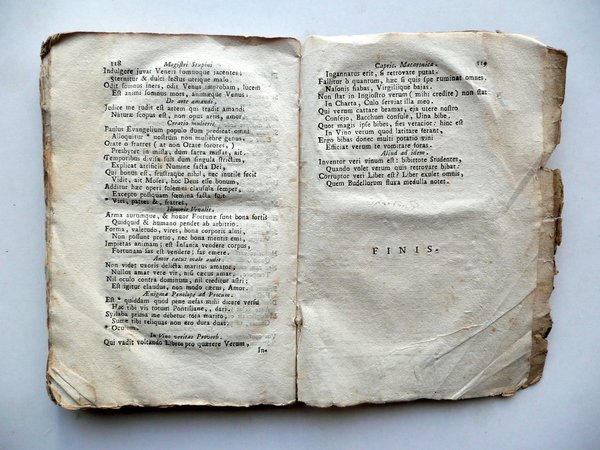 118 Magistri Stopini
Indulgere juvat Veneri somnoque jacentes;
Sternitur & dulci lectus utrique malo.
Odit somnus iners, odit Venus improbam, lucem
Est animi somnus mors, animæque Venus.
De arte amandi.
Judice me rudis est artem qui tradit amandi
Naturæ scopus est, non opus artis, amor.
Creatio mulieris.
Paulus Evangelium populo dum prædicat omni
Alloquitur * nostrum non muliebre genus.
Orate o fratres ( at non Orate sorores, )
Presbyter in missa, dum sacra mistat, ait.
Temporibus divisa suis dum singula strictim,
Explicat artificis Numine facta Dei,
Qui bonus est, frustraque nihil, nec inutile fecit
Vidit, ait Moses, hoc Deus esse bonum,
Additur hæc operi solemni clausula semper,
Excepto postquam fœmina facta fuit
* Viri, patres &, fratres,
Honores Venales.
Arma aurumque, & honor Fortunæ sunt bona fortis
Quidquid & humano pendet ab arbitrio.
Forma, valetudo, vires, bona corporis almi,
Non possunt pretio, nec bona mentis emi,
Impietas animam; est Insania vendere corpus,
Fortunam fas est vendere; fas emere.
Amor cæcus male audit.
Non videt uxoris delicta maritus amator,
Nullos amat vere vir, nisi cæcus amat,
Nil oculo contra dominum, nil creditur astri:
Est igitur claudus, non modo cæcus, Amor.
Ænigma Penelope ad Procum.
Est * quiddam quod pene nefas mihi dicere versu
Hac tibi vis totum Pontiliane, dari.
Syllaba prima me debetur tota marito,
Sume tibi reliquas non ero dura duas.
* Ocu
In Vino veritas Proverb.
Qui vadit voltando Libros pro quærere Verum,
In-
Capric. Macaronica. 119
Ingannatus erit, si retrovare putat,
Fallitur ò quantum, hæc si quis spe ruminat omnes,
Nasonis fiabas, Virgiliique bajas.
Non stat in Ingiostro verum ( mihi credite ) non stat
In Charta, Culo serviat illa meo.
Qui verum cattare beamas, eja utere nostro
Consejo, Bacchum consule, Uina bibe,
Quor magis ipse bibes, fies veracior: hinc est
In Vino verum quod latitare ferant,
Ergo bibas donec multi potatio vini
Efficiat verum te vomitare foras.
Aliud ad idem.
Inventor veri vinum est: bibitote Studentes,
Quando volet verum quis retrovare bibat.
Corruptor veri Liber est? Liber exulet omnis,
Quem Budellorium fluxa medulla notet.
FINIS.